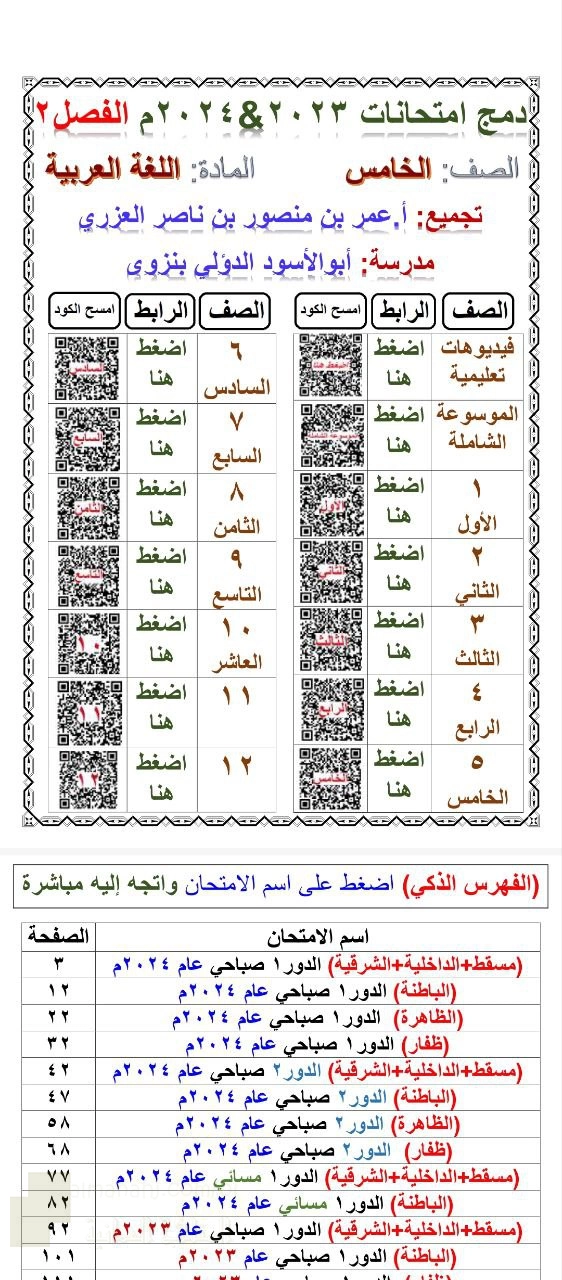 دمج امتحانات ٢٠٢٣&٢٠٢٤م الفصل٢
الصف: الخامس المادة: اللغة العربية
تجميع: أ.عمر بن منصور بن ناصر العزري
مدرسة: أبوالأسود الدؤلي بنزوى
الصف الرابط امسح الكود الصف الرابط امسح الكود
فيديوهات تعليمية اضغط هنا اضغط هنا ٦ السادس اضغط هنا السادس
الموسوعة الشاملة اضغط هنا الموسوعة الشاملة ٧ السابع اضغط هنا السابع
١ الأول اضغط هنا الأول ٨ الثامن اضغط هنا الثامن
٢ الثاني اضغط هنا الثاني ٩ التاسع اضغط هنا التاسع
٣ الثالث اضغط هنا الثالث ١٠ العاشر اضغط هنا ١٠
٤ الرابع اضغط هنا الرابع ١١ اضغط هنا ١١
٥ الخامس اضغط هنا الخامس ١٢ اضغط هنا ١٢
(الفهرس الذكي) اضغط على اسم الامتحان واتجه إليه مباشرة
اسم الامتحان الصفحة
(مسقط+الداخلية+الشرقية) الدور١ صباحي عام ٢٠٢٤م ٣
(الباطنة) الدور١ صباحي عام ٢٠٢٤م ١٢
(الظاهرة) الدور١ صباحي عام ٢٠٢٤م ٢٢
(ظفار) الدور١ صباحي عام ٢٠٢٤م ٣٢
(مسقط+الداخلية+الشرقية) الدور٢ صباحي عام ٢٠٢٤م ٤٢
(الباطنة) الدور٢ صباحي عام ٢٠٢٤م ٤٧
(الظاهرة) الدور٢ صباحي عام ٢٠٢٤م ٥٨
(ظفار) الدور٢ صباحي عام ٢٠٢٤م ٦٨
(مسقط+الداخلية+الشرقية) الدور١ مسائي عام ٢٠٢٤م ٧٧
(الباطنة) الدور١ مسائي عام ٢٠٢٤م ٨٢
(مسقط+الداخلية+الشرقية) الدور١ صباحي عام ٢٠٢٣م ٩٢
(الباطنة) الدور١ صباحي عام ٢٠٢٣م ١٠١